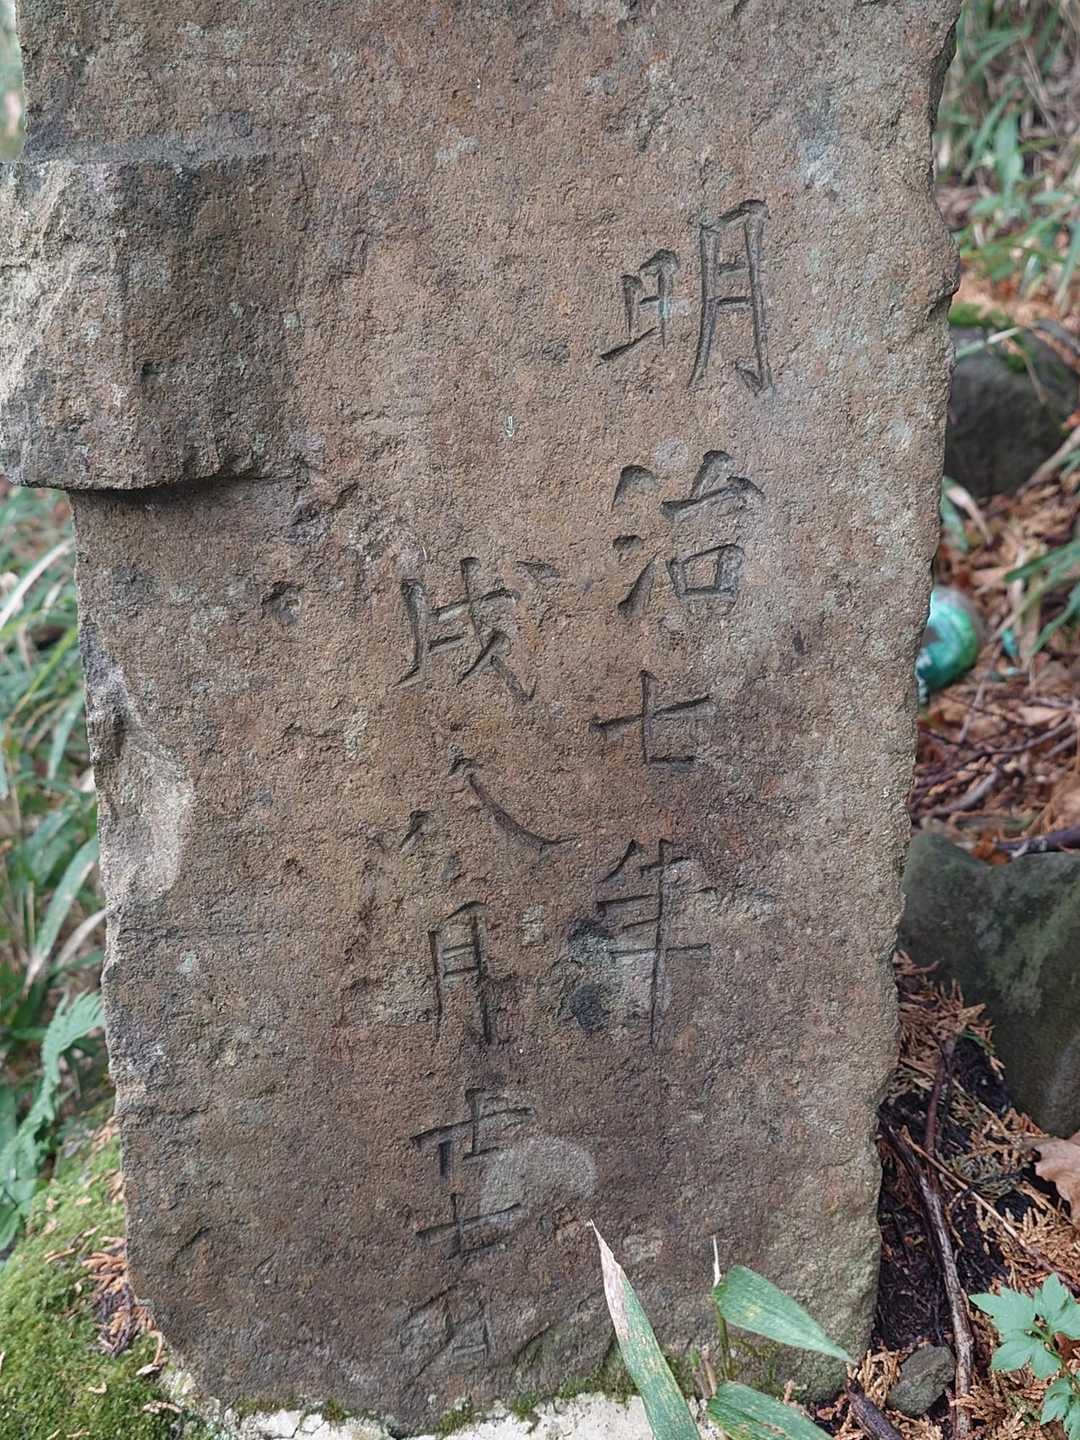 明治七年
戌八月廿七日